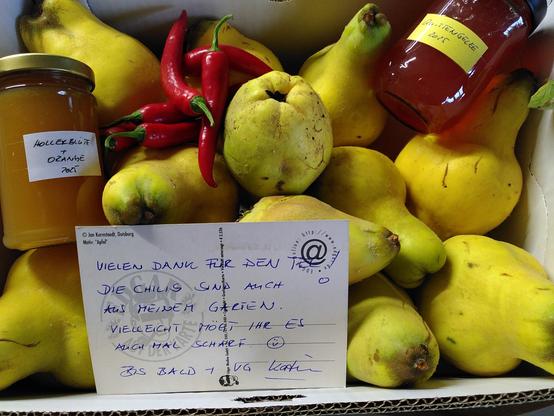 QUITTENGELEE
2015
HOLLERBLÜTE
+
ORANGE
2015
© Jan Kornstaedt, Duisburg
Motiv: "Apfel"
http://www.
@
VIELEN DANK FÜR DEN
DIE CHILIS SIND AUCH
AUS MEINEM GARTEN.
VIELLEICHT MÖGT IHR ES
AUCH MAL SCHARF
BIS BALD + VG